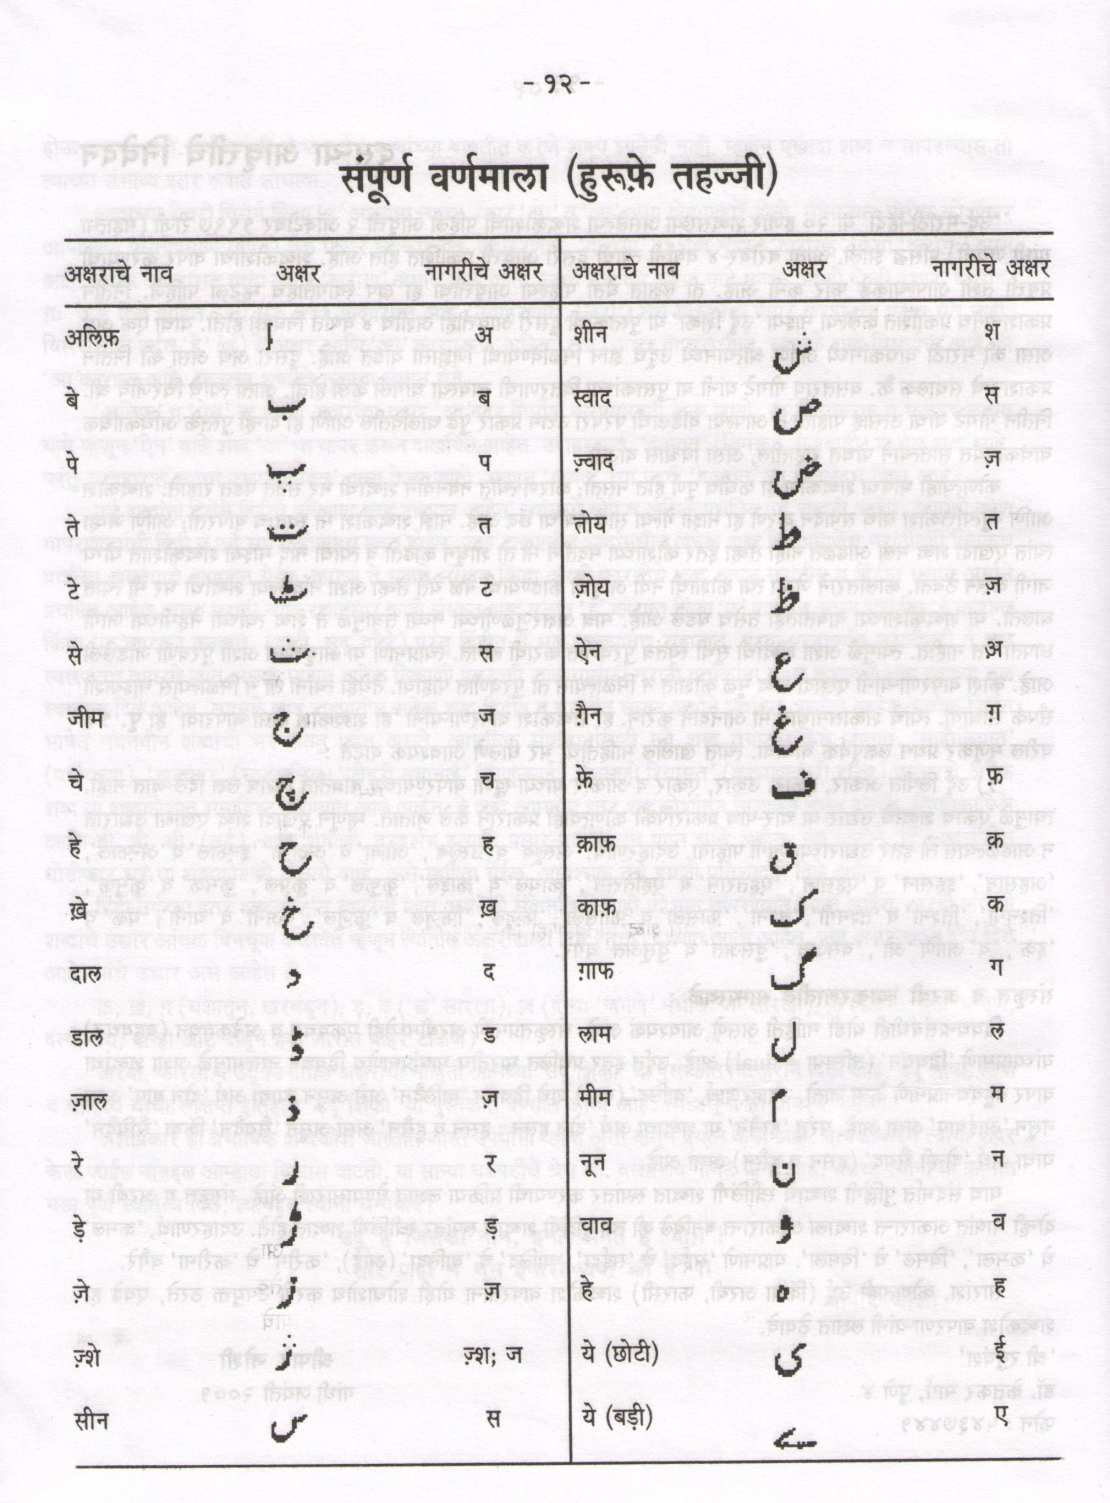 - १२ -
संपूर्ण वर्णमाला (हुरूफ़े तहज्जी)
अक्षराचे नाव अक्षर नागरीचे अक्षर अक्षराचे नाव अक्षर नागरीचे अक्षर
अलिफ़ ا अ शीन ش श
बे ب ब स्वाद ص स
पे پ प ज़्वाद ض ज़
ते ت त तोय ط त
टे ٹ ट ज़ोय ظ ज़
से ث स ऐन ع अ़
जीम ج ज ग़ैन غ ग़
चे چ च फ़े ف फ़
हे ح ह क़ाफ़ ق क़
ख़े خ ख़ काफ़ ک क
दाल د द ग़ाफ گ ग
डाल ڈ ड लाम ل ल
ज़ाल ذ ज़ मीम م म
रे ر र नून ن न
ड़े ڑ ड़ वाव و व
ज़े ز ज़ हे ہ ह
ज़्शे ژ ज़्श; ज ये (छोटी) ی ई
सीन س स ये (बड़ी) ے ए